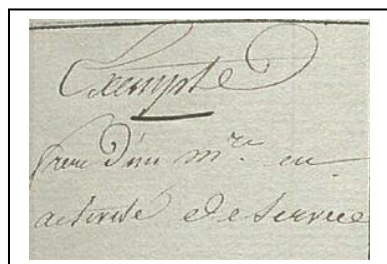 Exempté
frere d'un m.re en
activité de service